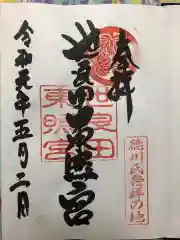 奉拝
世良田東照宮
世良田
東照宮
徳川氏発祥の地
令和元年五月二日